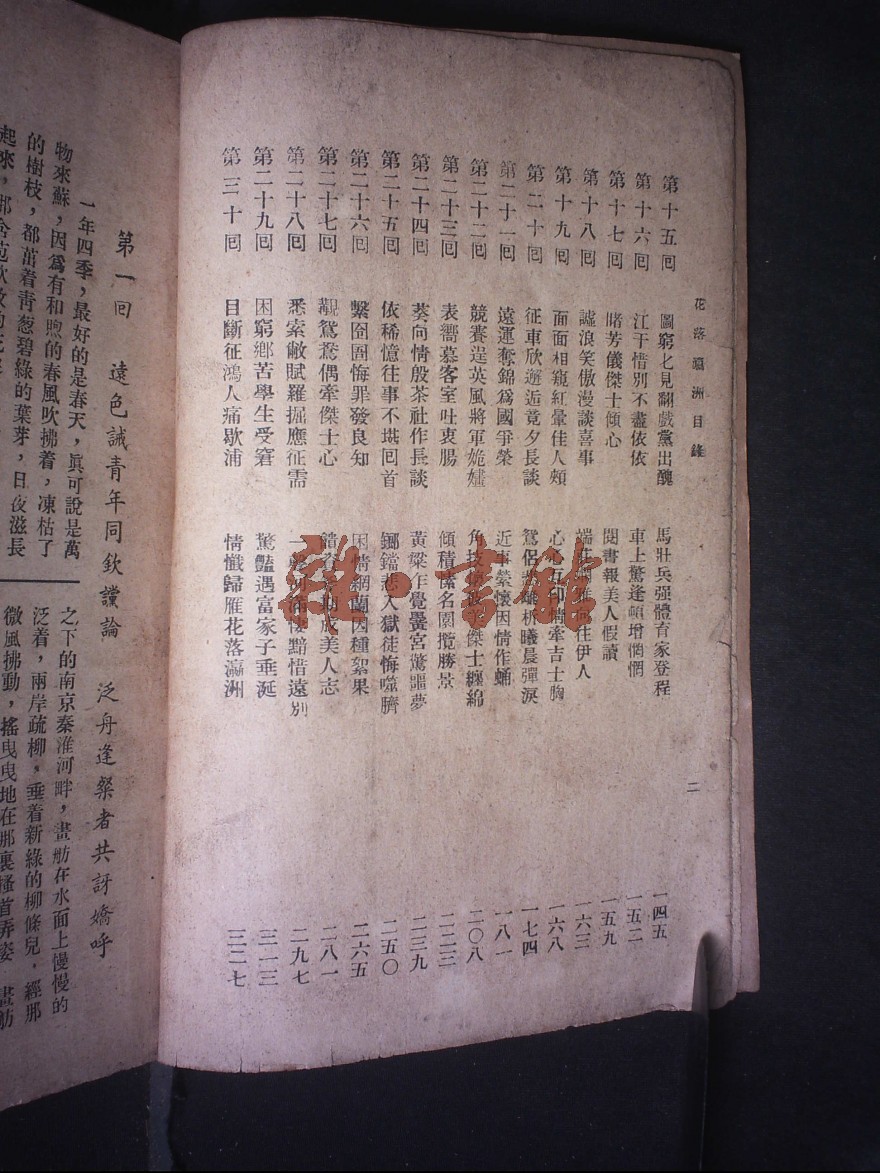 花落瀛洲目錄
二
第十五回 圖窮匕見翻戲黨出醜 馬壯兵强體育家登程 一四五
第十六回 江干惜別不盡依依 車上驚逢頓增惘惘 一五二
第十七回 睹芳儀傑士傾心 閱書報美人假讀 一五九
第十八回 謔浪笑傲漫談喜事 端莊 伊人 一六三
第十九回 面面相窺紅暈佳人頰 心心互印情牽吉士胸 一六八
第二十回 征車欣邂逅竟夕長談 鴛侶 離析曦晨彈淚 一七四
第二十一回 遠運奪錦爲國爭榮 近事縈懷因情作蛹 一八一
第二十二回 競賽逞英風將軍嫓嫿 角技 傑士纏綿 二〇八
第二十三回 表嚮慕客室吐衷腸 傾積愫名園攬勝景 二二三
第二十四回 葵向情殷茶社作長談 黃粱乍覺黌宮驚噩夢 二三九
第二十五回 依稀憶往事不堪回首 鋃鐺悲入獄徒悔噬臍 二五〇
第二十六回 繫囹圄悔罪發良知 困情網蘭因種絮果 二六五
第二十七回 覯鴛鴦偶牽傑士心 成美人志 二八一
第二十八回 悉索敝賦羅掘應征需 黯惜遠別 二九七
第二十九回 困窮鄉苦學生受窘 驚豔遇富家子垂涎 三一三
第三十回 目斷征鴻人痛歇浦 情懺歸雁花落瀛洲 三二七
雜·書館
第一回 遠色誡青年同欽讜論 泛舟逢粲者共訝嬌呼
一年四季，最好的是春天，眞可說是萬
物來蘇，因爲有和煦的春風吹拂着，凍枯了
的樹枝，都茁着靑葱碧綠的葉芽，日夜滋長
起來，那含苞欲放的花
之下的南京秦淮河畔，畫舫在水面上慢慢的
泛着，兩岸疏柳，垂着新綠的柳條兒，經那
微風拂動，搖曳曳地在那裏搔首弄姿 畫舫